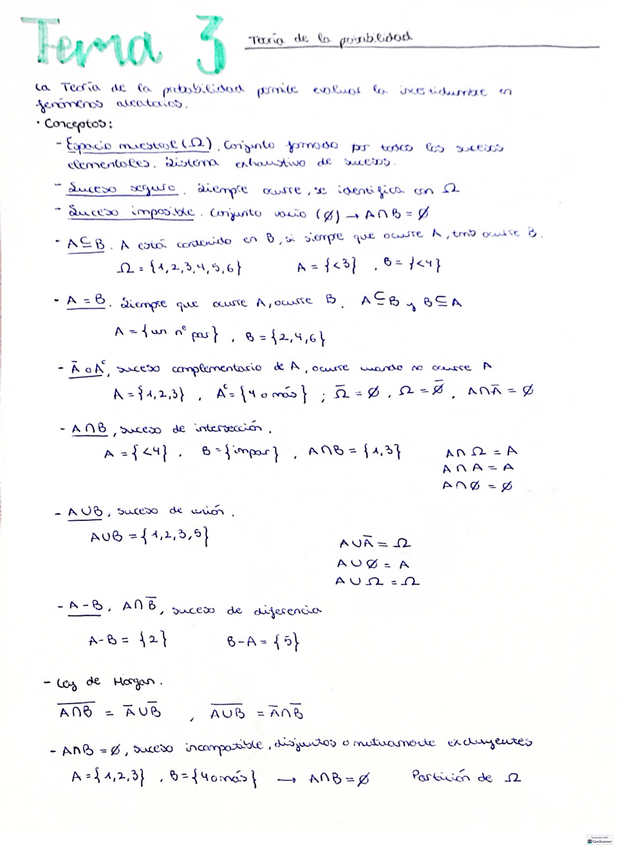 Tema 3 Teoría de la probabilidad
La Teoría de la probabilidad permite evaluar la incertidumbre en
fenómenos aleatorios.
· Conceptos:
- Espacio muestral (Ω). Conjunto formado por todos los sucesos
elementales. Sistema exhaustivo de sucesos.
- Suceso seguro. Siempre ocurre, se identifica con Ω
- Suceso imposible. Conjunto vacío (∅) → A∩B = ∅
- A⊆B. A está contenido en B, si siempre que ocurre A, tmb ocurre B.
Ω = {1,2,3,4,5,6} A = {<3} , B = {<4}
- A = B. Siempre que ocurre A, ocurre B. A⊆B y B⊆A
A = {un nº par} , B = {2,4,6}
- Ā o Aᶜ, suceso complementario de A, ocurre cuando no ocurre A
A = {1,2,3} , Aᶜ = {4 o más} ; Ω̅ = ∅ , Ω = ∅̅ , A∩Ā = ∅
- A∩B, suceso de intersección.
A = {<4} , B = {impar} , A∩B = {1,3} A∩Ω = A
A∩A = A
A∩∅ = ∅
- A∪B, suceso de unión.
A∪B = {1,2,3,5}
A∪Ā = Ω
A∪∅ = A
A∪Ω = Ω
- A-B, A∩B̅, suceso de diferencia
A-B = {2} B-A = {5}
- Ley de Morgan.
A̅∩̅B̅ = A̅∪B̅ , A̅∪̅B̅ = A̅∩B̅
- A∩B = ∅, suceso incompatible, disjuntos o mutuamente excluyentes
A = {1,2,3} , B = {4 o más} → A∩B = ∅ Partición de Ω
CamScanner